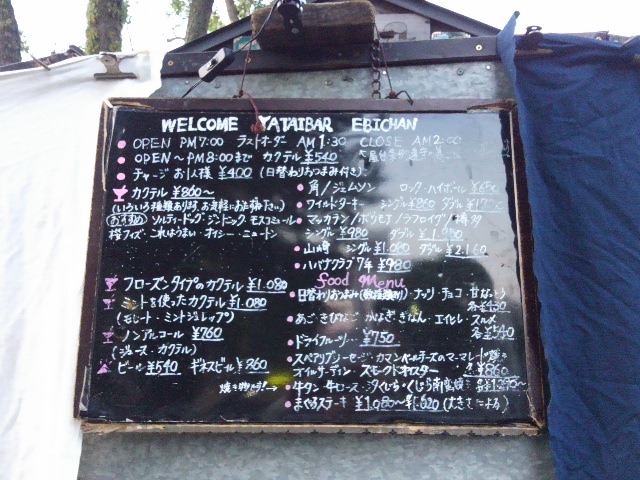 WELCOME YATAIBAR EBICHAN
OPEN PM7:00 ラストオーダー AM1:30 CLOSE AM2:00
OPEN～PM8:00まで カクテル ¥540
チャージ お1人様 ¥400 (日替わりおつまみ付き)
カクテル ¥860～
(いろいろ種類あります。お気軽にお尋ね下さい)
おすすめ ソルティードッグ・ジントニック・モスコミュール
桜フィズ・これはうまい・オイシー・ニュートン
フローズンタイプのカクテル ¥1.080
ミントを使ったカクテル ¥1.080
(モヒート・ミントジュレップ)
ノンアルコール ¥760
(ジュース・カクテル)
ビール ¥540 ギネスビール ¥860
焼き物

角/ジェムソン ロック・ハイボール
ワイルドターキー シングル ¥860 ダブル
マッカラン/ボウモア/ラフロイグ/
シングル ¥980 ダブル
山崎 シングル ¥1.080 ダブル ¥2.160
ハバナクラブ 7年 ¥980
food Menu
日替わりおつまみ ナッツ・チョコ・甘なっとう
各¥430
あご・きびなご ぎんなん・エイヒレ・スルメ
各¥540
ドライフルーツ ¥750
スペアリブ カマンベールチーズのマーマレード焼き
オイルサーディン・スモークドオイスター 各¥860
牛タン・牛ロース・
まぐろステーキ ¥1.080～¥1.620 (大きさによる)